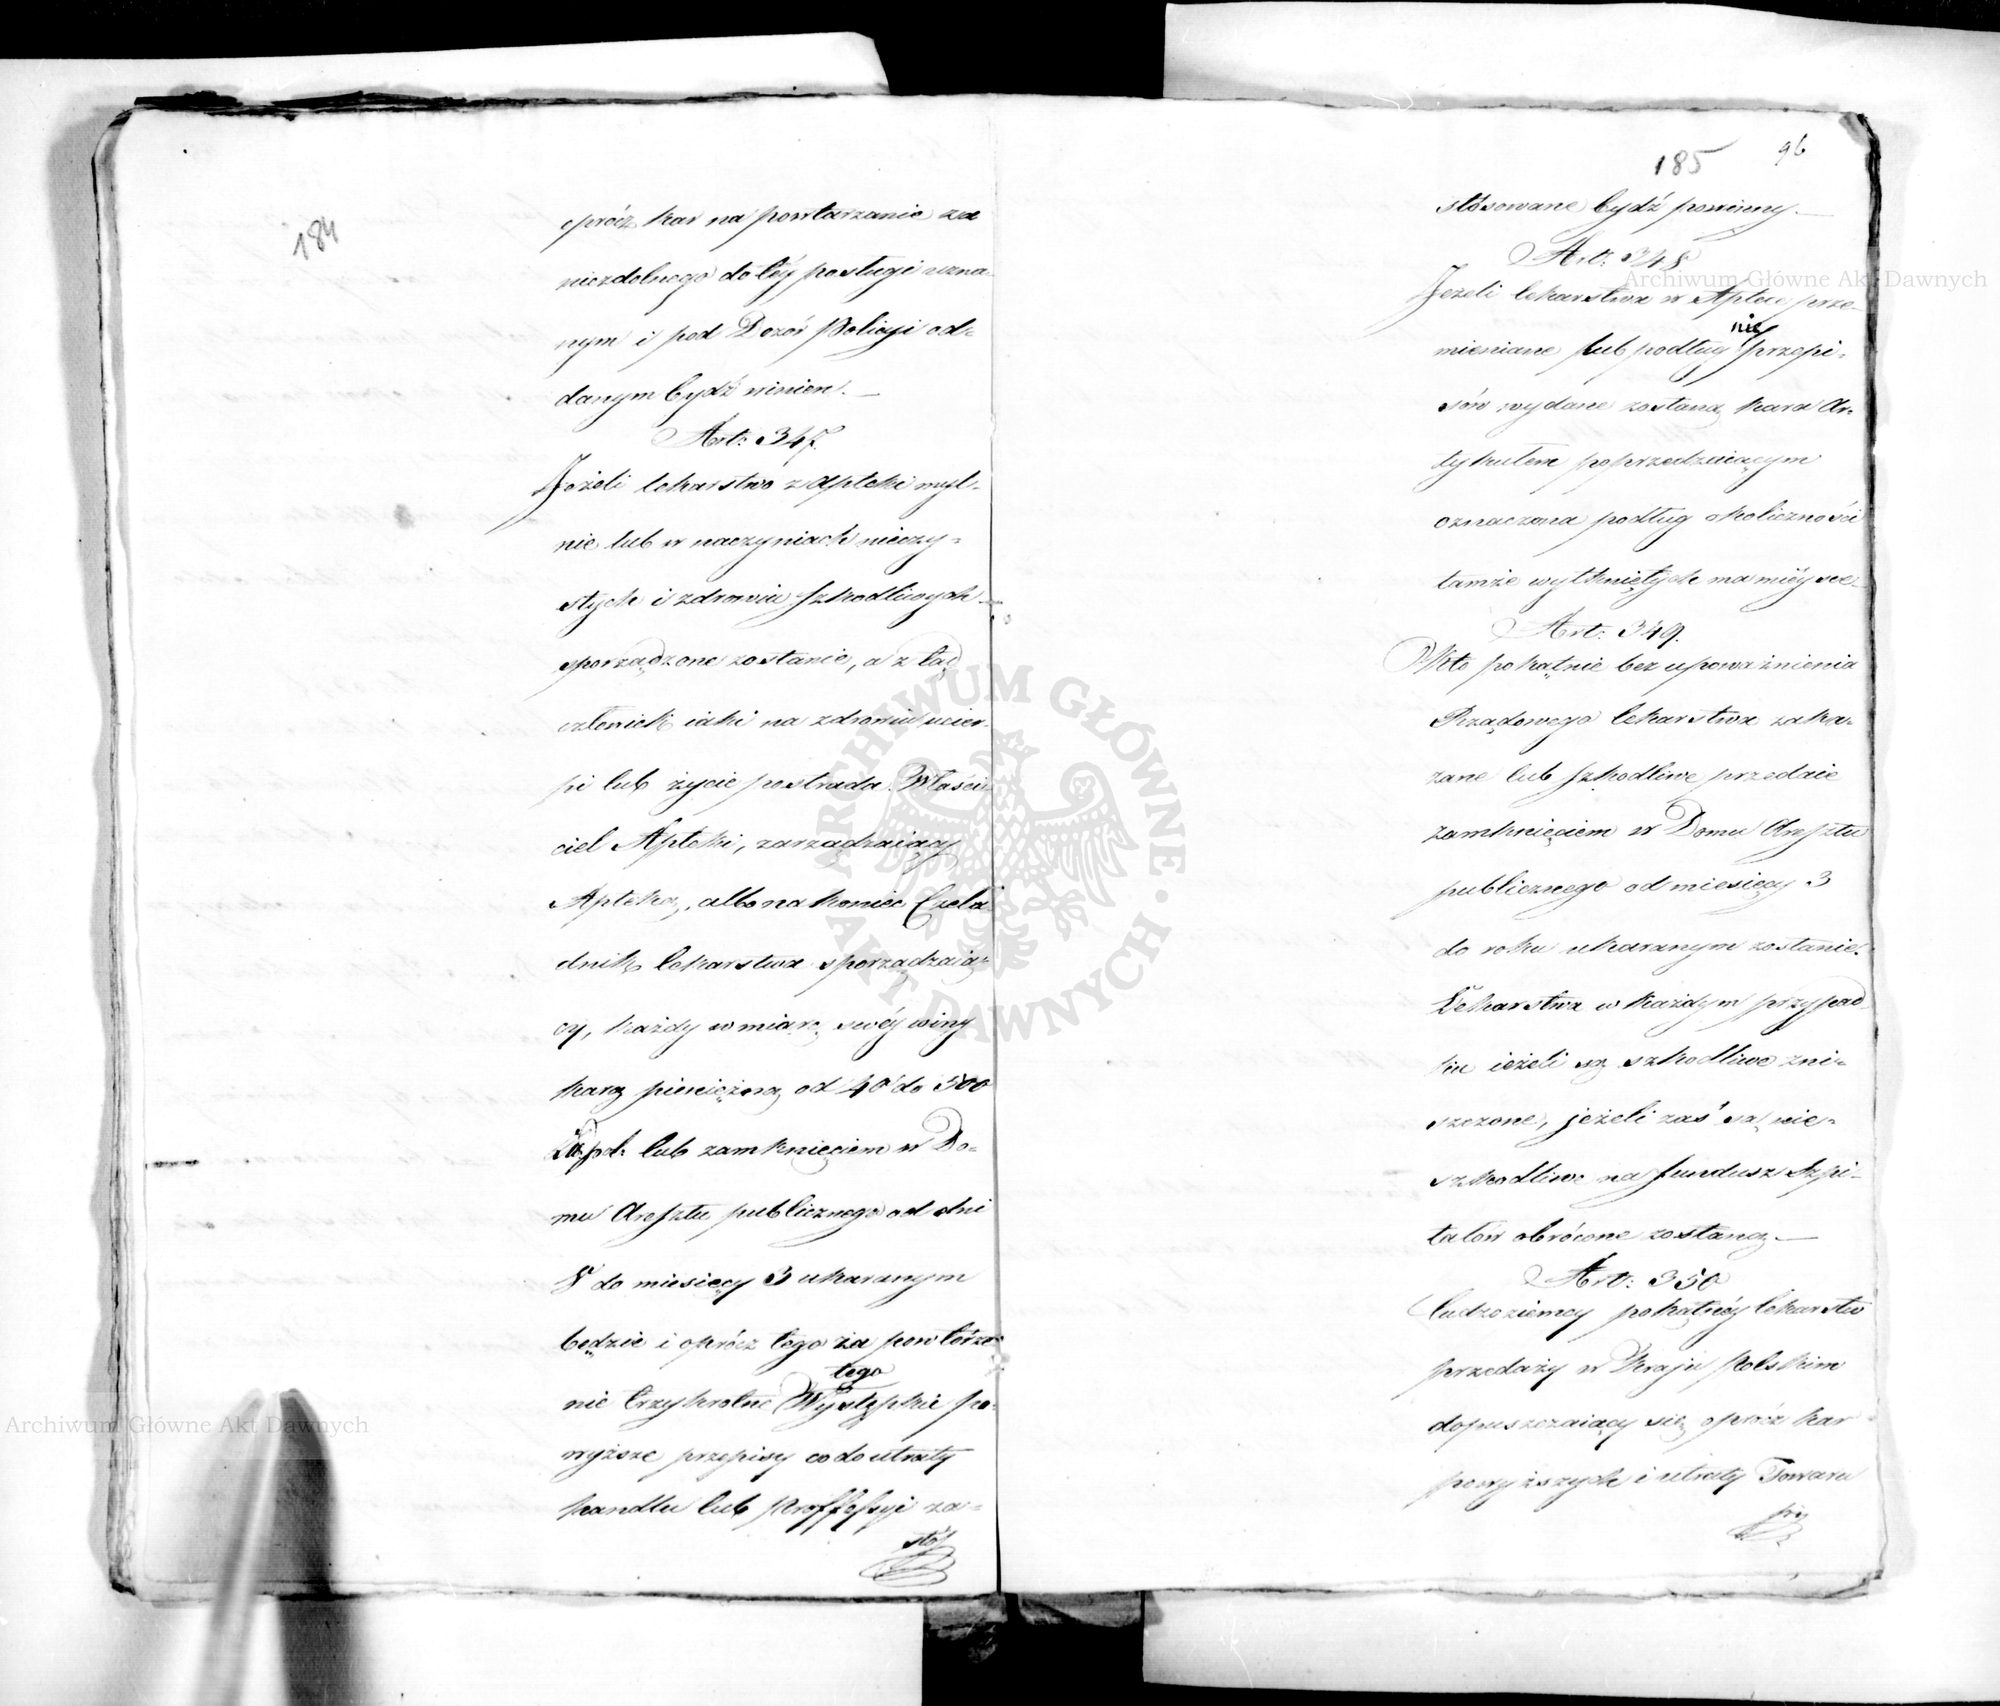 184
oprócz kar na powtarzanie za
niezdolnego do téy posługi uzna-
nym i pod Dozór Policyi od-
danym bydź winien. —
Art: 347.
Jeżeli lekarstwo z Apteki myl-
nie lub w naczyniach nieczy-
stych i zdrowiu szkodliwych
sporządzone zostanie, a z tąd
człowiek iaki na zdrowiu ucier-
pi lub życie postrada Właści-
ciel Apteki, zarządzaiący
Apteką, albo na koniec Czela-
dnik lekarstwa sporządzaią-
cy, każdy w miarę swéy winy
karą pieniężną od 40 do 500
Zł. pol: lub zamknięciem w Do-
mu Aresztu publicznego od dni
8 do miesięcy 3 ukaranym
będzie i oprócz tego za powtórze-
tego
nie trzykrotne Występku po-
wyższe przepisy co do utraty
handlu lub Proffessyi za-
stó
185
96
stósowane bydź powinny. —
Art: 348
Jeżeli lekarstwa w Aptece prze-
nie
mieniane lub podług przepi-
sów wydane zostaną kara Ar-
tykułem poprzedzaiącym
oznaczona podług okoliczności
tamże wytkniętych ma miéysce
Art: 349.
Kto pokątnie bez upoważnienia
Rządowego lekarstwa zaka-
zane lub szkodliwe przedaie
zamknięciem w Domu Aresztu
publicznego od miesięcy 3
do roku ukaranym zostanie.
Lekarstwa w każdym przypad-
ku ieżeli są szkodliwe zni-
szczone, jeżeli zaś są nie-
szkodliwe na fundusz Szpi-
talów obrócone zostaną. —
Art: 350
Cudzoziemcy pokątnéy lekarstw
przedaży w Kraju Polskim
dopuszczaiący się oprócz kar
powyższych i utraty Towaru
prz
Archiwum Główne Akt Dawnych
Archiwum Główne Akt Dawnych
ARCHIWUM GŁÓWNE AKT DAWNYCH